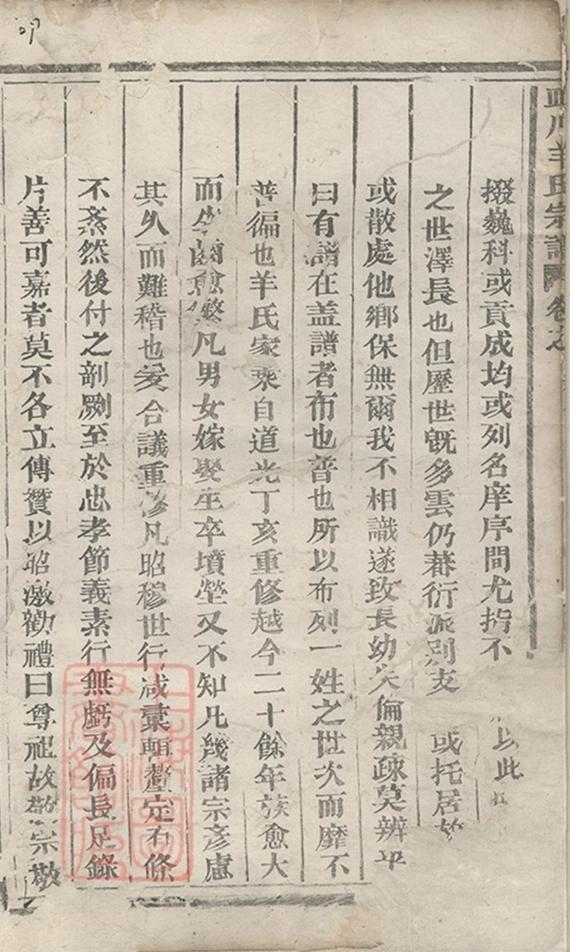 川羊氏宗譜
撥巍科或貢成均或列名庠序間尤指不以此
之世澤長也但歷世旣多雲仍蕃衍派別支或托居
或散處他鄉保無爾我不相識遂致長幼失倫親疎莫辨平
曰有譜在盖譜者布也普也所以布列一姓之世次而靡不
普徧也羊氏家乘自道光丁亥重修越今二十餘年族愈大
而生齒愈繁凡男女嫁娶生卒墳塋又不知凡幾諸宗彥慮
其久而難稽也爰合議重修凡昭穆世行咸彚輯釐定有條
不紊然後付之剞劂至於忠孝節義素行無虧及偏長足錄
片善可嘉者莫不各立傳贊以昭激勸禮曰尊祖故敬宗敬